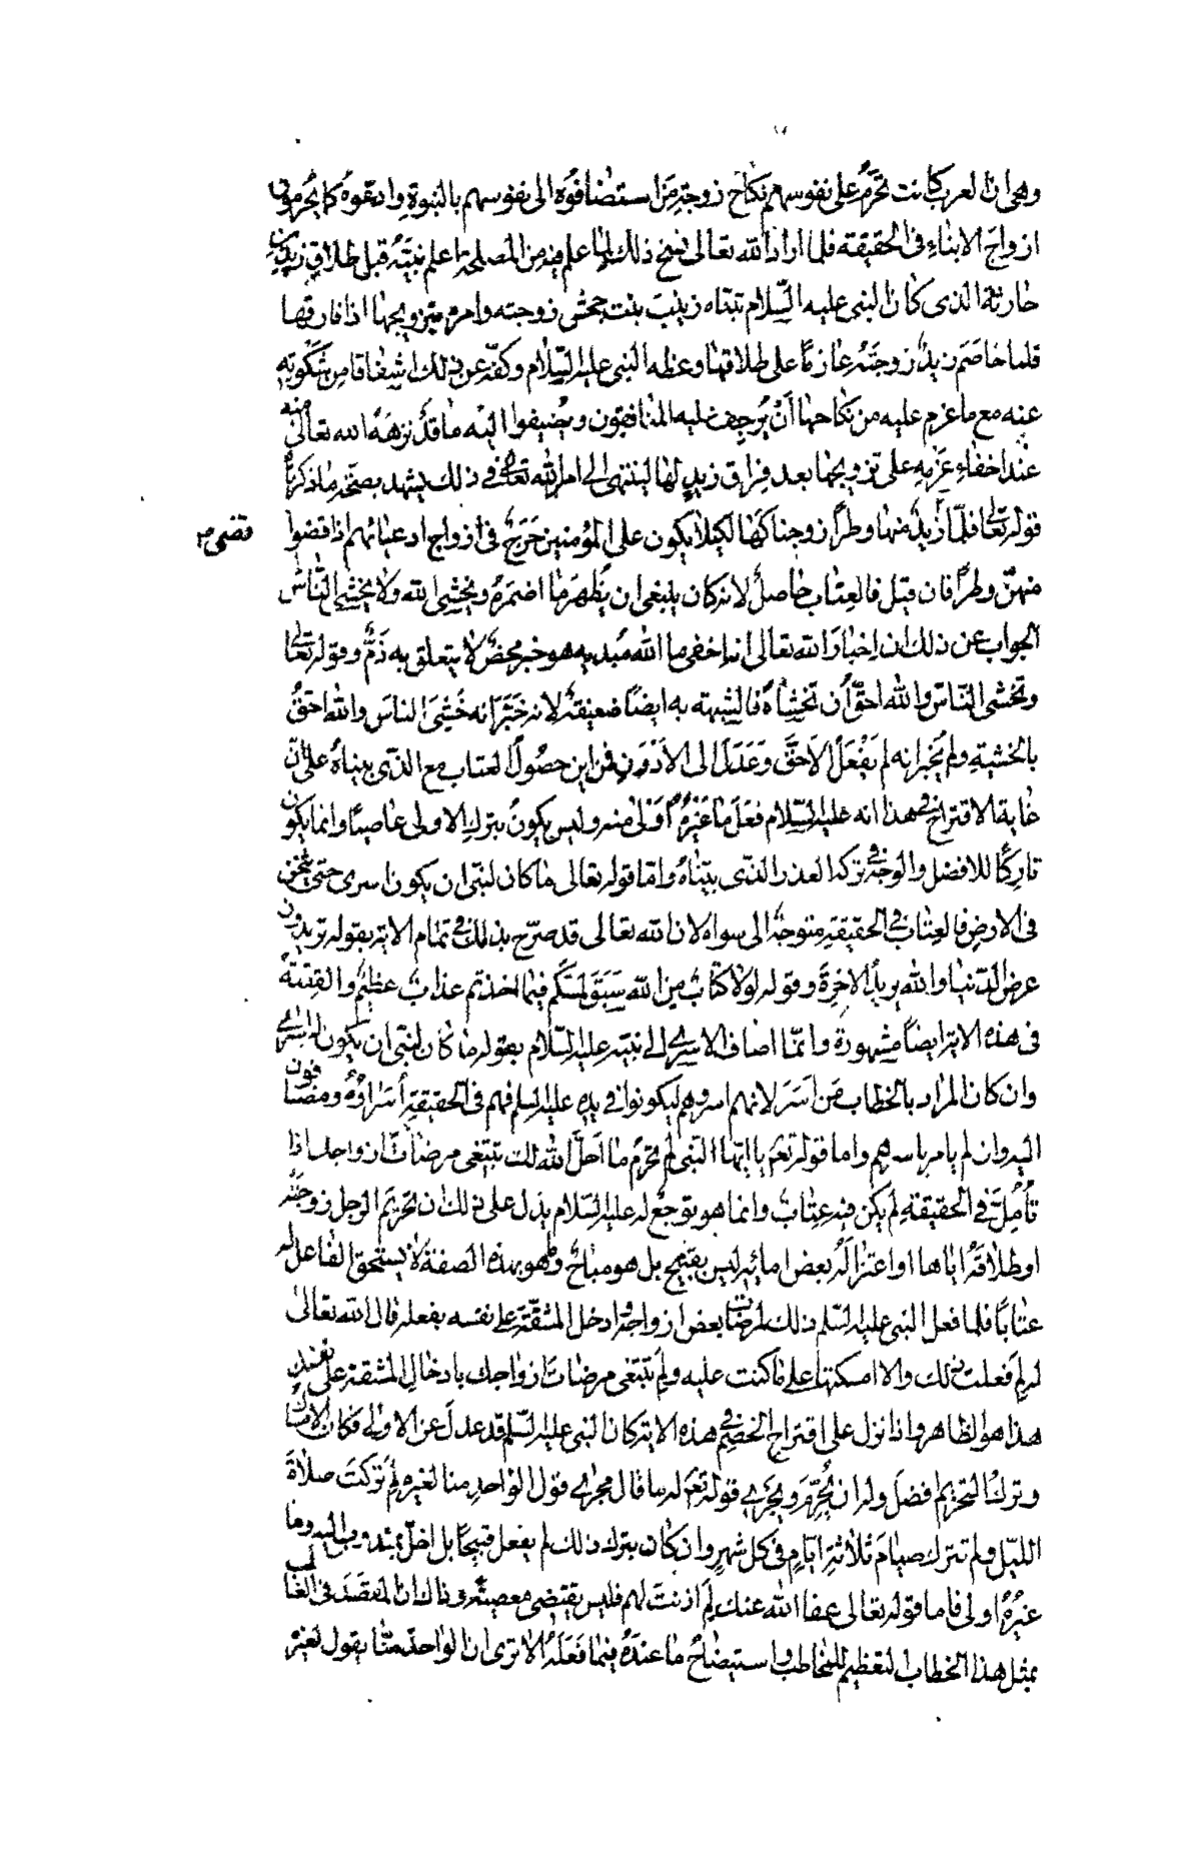 وهى ان العرب كانت تحرم على نفوسهم نكاح زوجة من استضافوه الى نفوسهم بالبنوة وادعوه كما يحرمون
ازواج الابناء فى الحقيقة فلما اراد الله تعالى نسخ ذلك لما علم فيه من المصلحة اعلم نبيه قبل طلاق زيد بن
حارثة الذى كان النبى عليه السلام تبناه زينب بنت جحش زوجته وامره بتزويجها اذا فارقها
فلما خاصم زيد زوجته عازما على طلاقها وعظه النبى عليه السلام وكفه عن ذلك اشفاقا من شكويه
عنه مع ما عزم عليه من نكاحها أن يرجف عليه المنافقون ويضيفوا اليه ما قد نزهه الله تعالى منه
عند اخفاء عزمه على تزويجها بعد فراق زيد لها لينتهى الى امر الله تعالى فى ذلك يشهد بصحة ما ذكرنا
قوله تعالى فلما زيد منها وطرا زوجناكها لكيلا يكون على المؤمنين حرج فى ازواج ادعيائهم اذا قضوا
قضى
منهن وطرا فان قيل فالعتاب حاصل لانه كان ينبغى ان يظهر ما اضمره ويخشى الله ولا يخشى الناس
الجواب عن ذلك ان اخبار الله تعالى انه اخفى ما الله مبديه هو خبر محض لا يتعلق به ذم وقوله تعالى
وتخشى الناس والله احق أن تخشاه فالشبهته به ايضا ضعيفة لانه خبر انه خشى الناس والله احق
بالخشية ولم يخبر انه لم يفعل الاحق وعدل الى الأدون فمن اين حصول العتاب مع الذى بيناه على ان
غاية الاقتراح فى هذا انه عليه السلام فعل ما غيره أولى منه وليس يكون بترك الاولى عاصيا وانما يكون
تاركا للافضل والوجه فى تركه العذر الذى بيناه واما قوله تعالى ما كان لنبى ان يكون له اسرى حتى يثخن
فى الارض فالعتاب فى الحقيقة متوجه الى سواه لان الله تعالى قد صرح بذلك فى تمام الاية بقوله تريدون
عرض الدنيا والله يريد الاخرة وقوله لولا كتاب من الله سبق لمسكم فيما اخذتم عذاب عظيم والقصة
فى هذه الاية ايضا مشهورة وانما اضاف الاسرى الى نبيه عليه السلام بقوله ما كان لنبى ان يكون له اسرى
وان كان المراد بالخطاب من أسر لانهم اسروهم ليكونوا فى يده عليه السلم فهم فى الحقيقة أسراؤه ومضافون
اليه وان لم يامر باسرهم واما قوله تعالى يا ايها النبى لم تحرم ما احل الله لك تبتغى مرضات ازواجك اذا
تأمل فى الحقيقة لم يكن فيه عتاب وانما هو توجع له عليه السلام يدل على ذلك ان تحريم الرجل زوجته
او طلاقه اياها او اعتزاله بعض امائه ليس بقبيح بل هو مباح وهو بهذه الصفة لا يستحق الفاعل له
عتابا فلما فعل النبى عليه السلم ذلك لمرضات بعض ازواجه وادخل المشقة على نفسه بفعله قال الله تعالى
له لم فعلت ذلك والا امسكتها على ما كنت عليه ولم تبتغى مرضات ازواجك بادخال المشقة على نفسك
هذا هو الظاهر واذا نزل على اقتراح الخصم فى هذه الاية كان النبى عليه السلم قد عدل عن الاولى فكان الامساك
وترك التحريم افضل وله ان يحرم ويجرى قوله تعالى له ما قال مجرى قول الواحد منا لغيره لم تركت صلاة
الليل ولم تترك صيام ثلاثة ايام فى كل شهر وان كان بترك ذلك لم يفعل قبيحا بل اخل بمندوب اليه وما
غيره اولى فاما قوله تعالى عفا الله عنك لم اذنت لهم فليس يقتضى معصية وذاك ان المقصد فى الغالب
بمثل هذا الخطاب التعظيم للمخاطب واستيضاح ما عنده فيما فعله الا ترى ان الواحد منا يقول لغيره